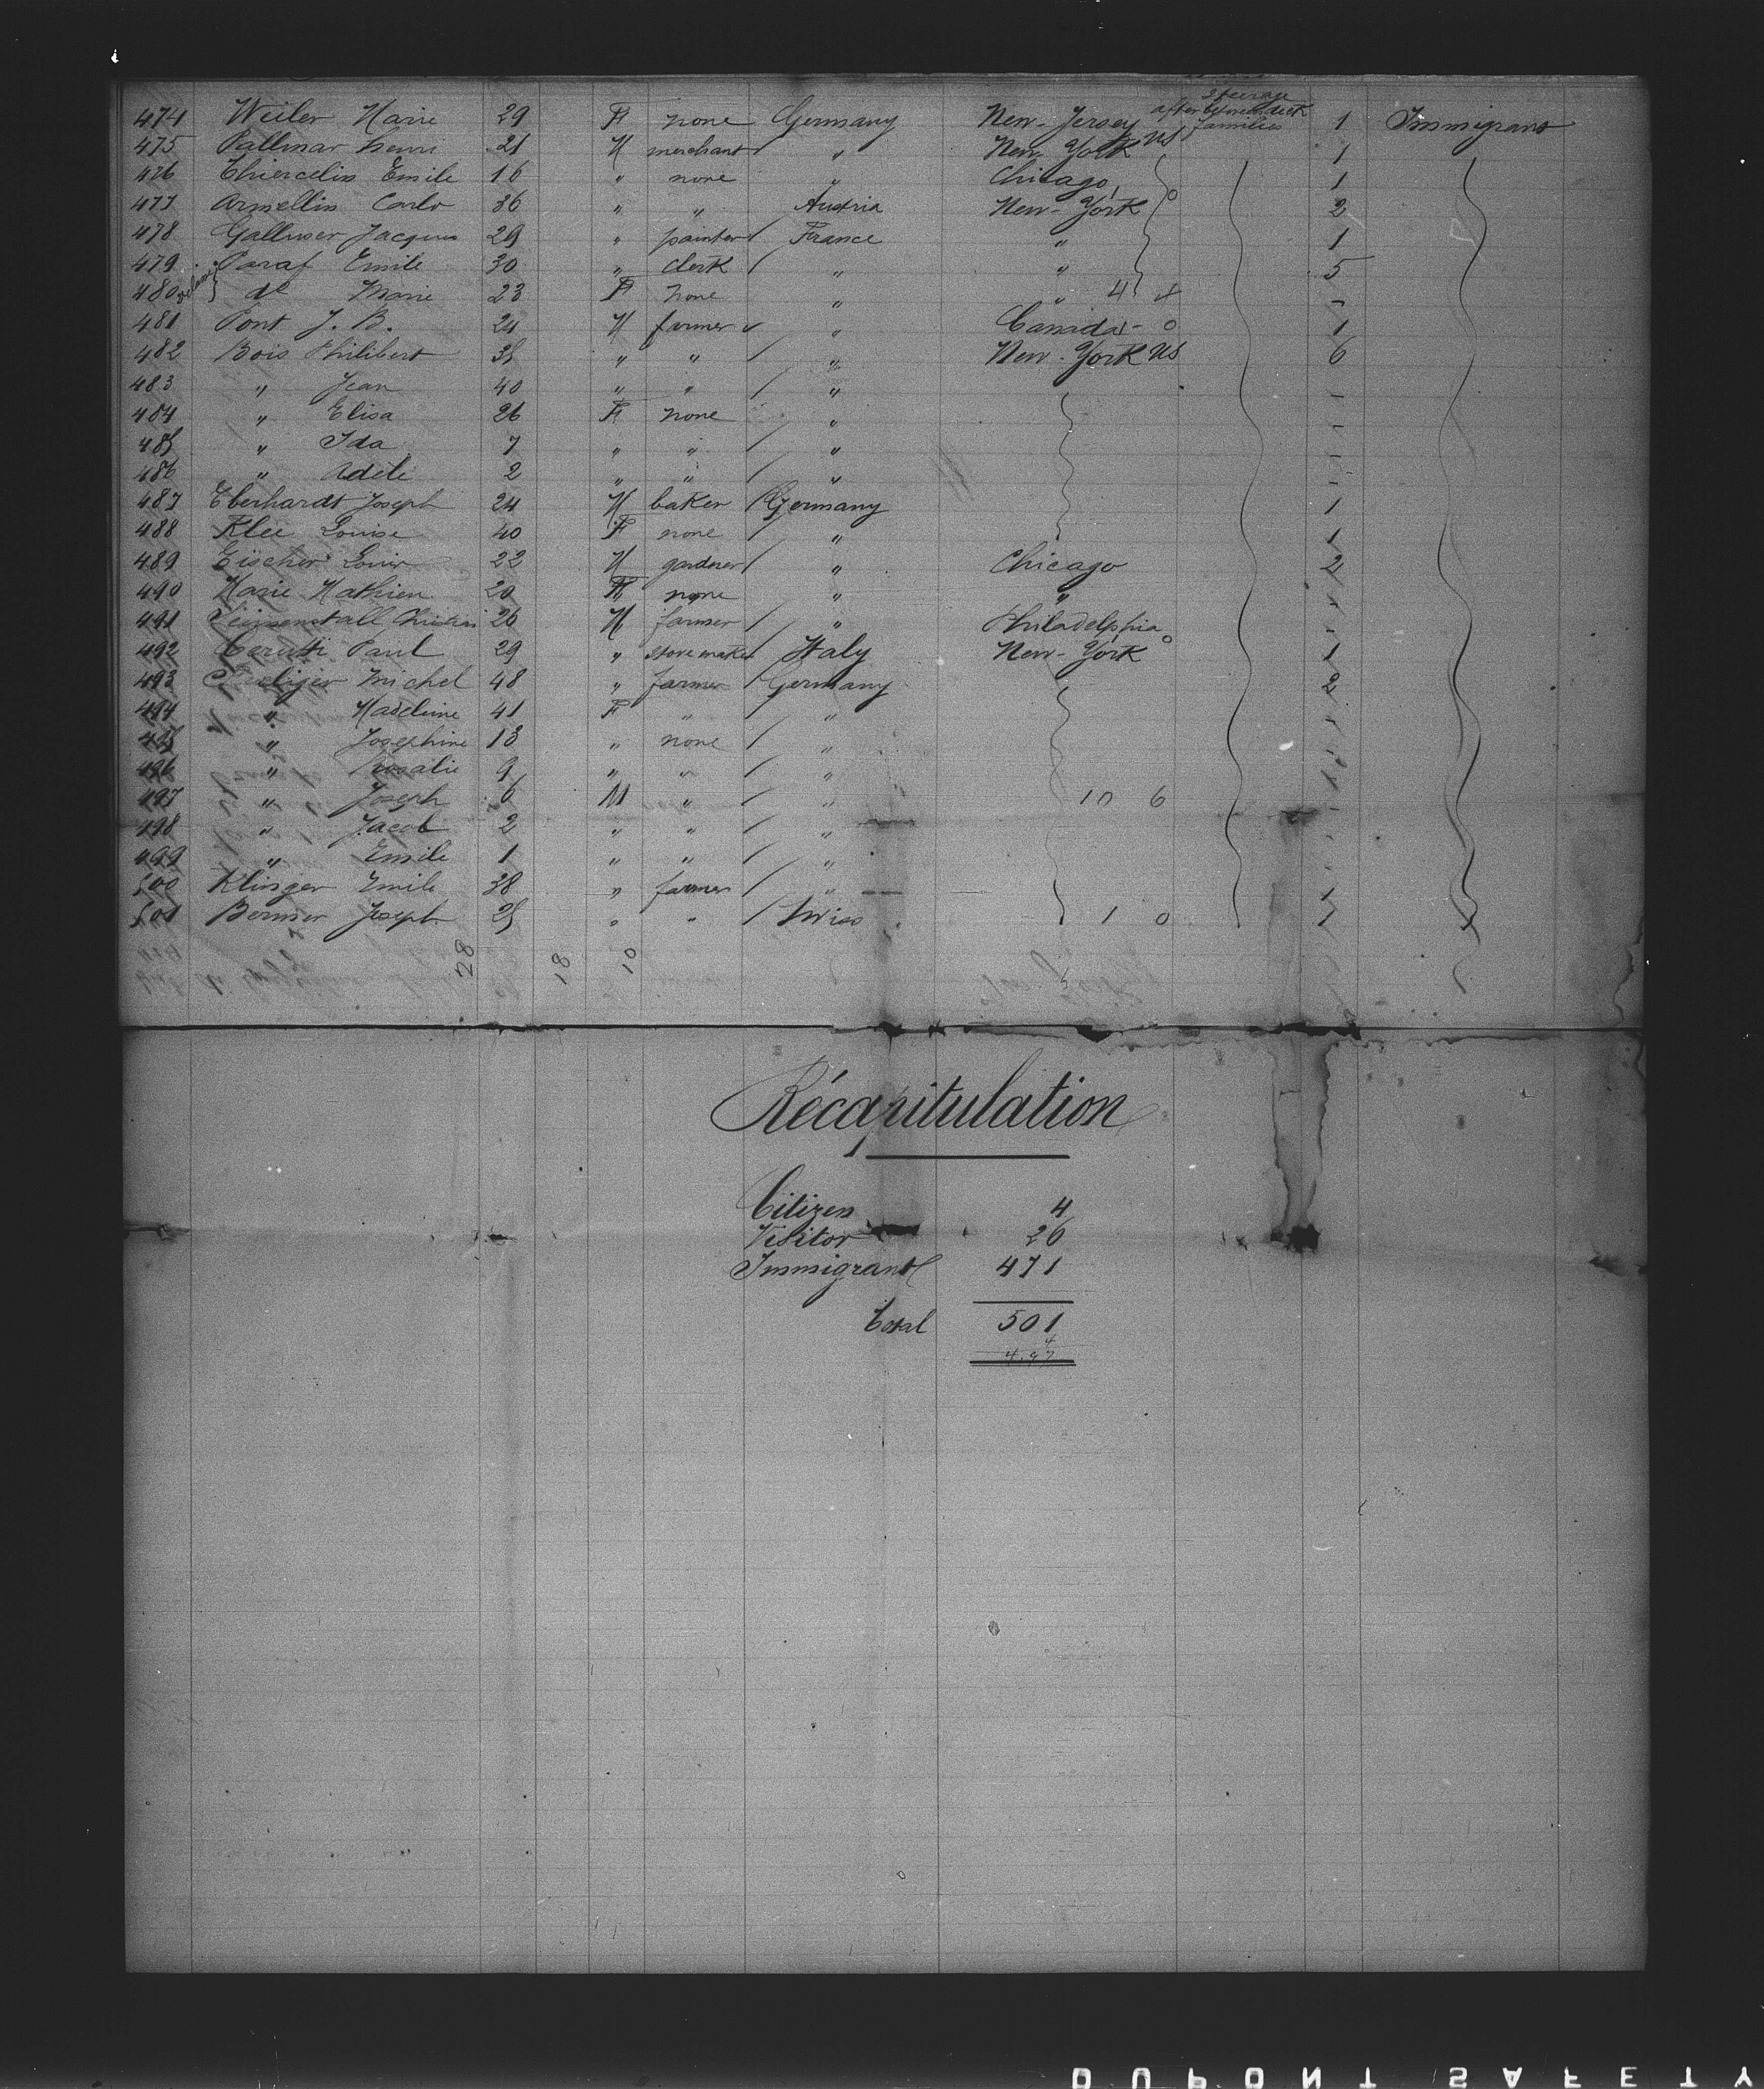 Steerage
474 Weiler Marie 29 F none Germany New-Jersey after between deck families 1 Immigrant
475 Pallmar henri 21 M merchant / " New-York US 1
476 Thiercelin Emile 16 " none " Chicago 1
477 Armellin Carlo 36 " " Austria New-York 0 2
478 Galluser Jacques 29 " painter / France " 1
479 Paraf Emile 30 " clerk / " " 5
480 de Marie 23 F none " " 4 -
481 Pont J. B. 24 M farmer " Canada - 0 1
482 Bois Philibert 35 " " / " New-York US 6
483 " Jean 40 " " / " -
484 " Elisa 26 F none " -
485 " Ida 7 " " / " -
486 " Adele 2 " " / " -
487 Eberhardt Joseph 24 M baker / Germany 1
488 Klee Louise 40 F none / " 1
489 Louis 22 M gardner / " Chicago 2
490 Marie Mathieu 20 F none " "
491 26 M farmer / " Philadelphia
492 Cerutti Paul 29 " / Italy New-York 0 1
493 Michel 48 " farmer / Germany 2
494 " Madeleine 41 F " "
495 " Josephine 13 " none / "
496 " Rosalie 9 " " / "
497 " Joseph 6 M " / " 10 6
498 " Jacob 2 " " / "
499 " Emile 1 " " / "
500 Klinger Emile 38 " farmer / " 1
501 Joseph 25 " " / Swiss 1 0 1
28 18 10
Récapitulation
Citizen 4
Visitor 26
Immigrant 471
Total 501
4
497
DUPONT SAFETY